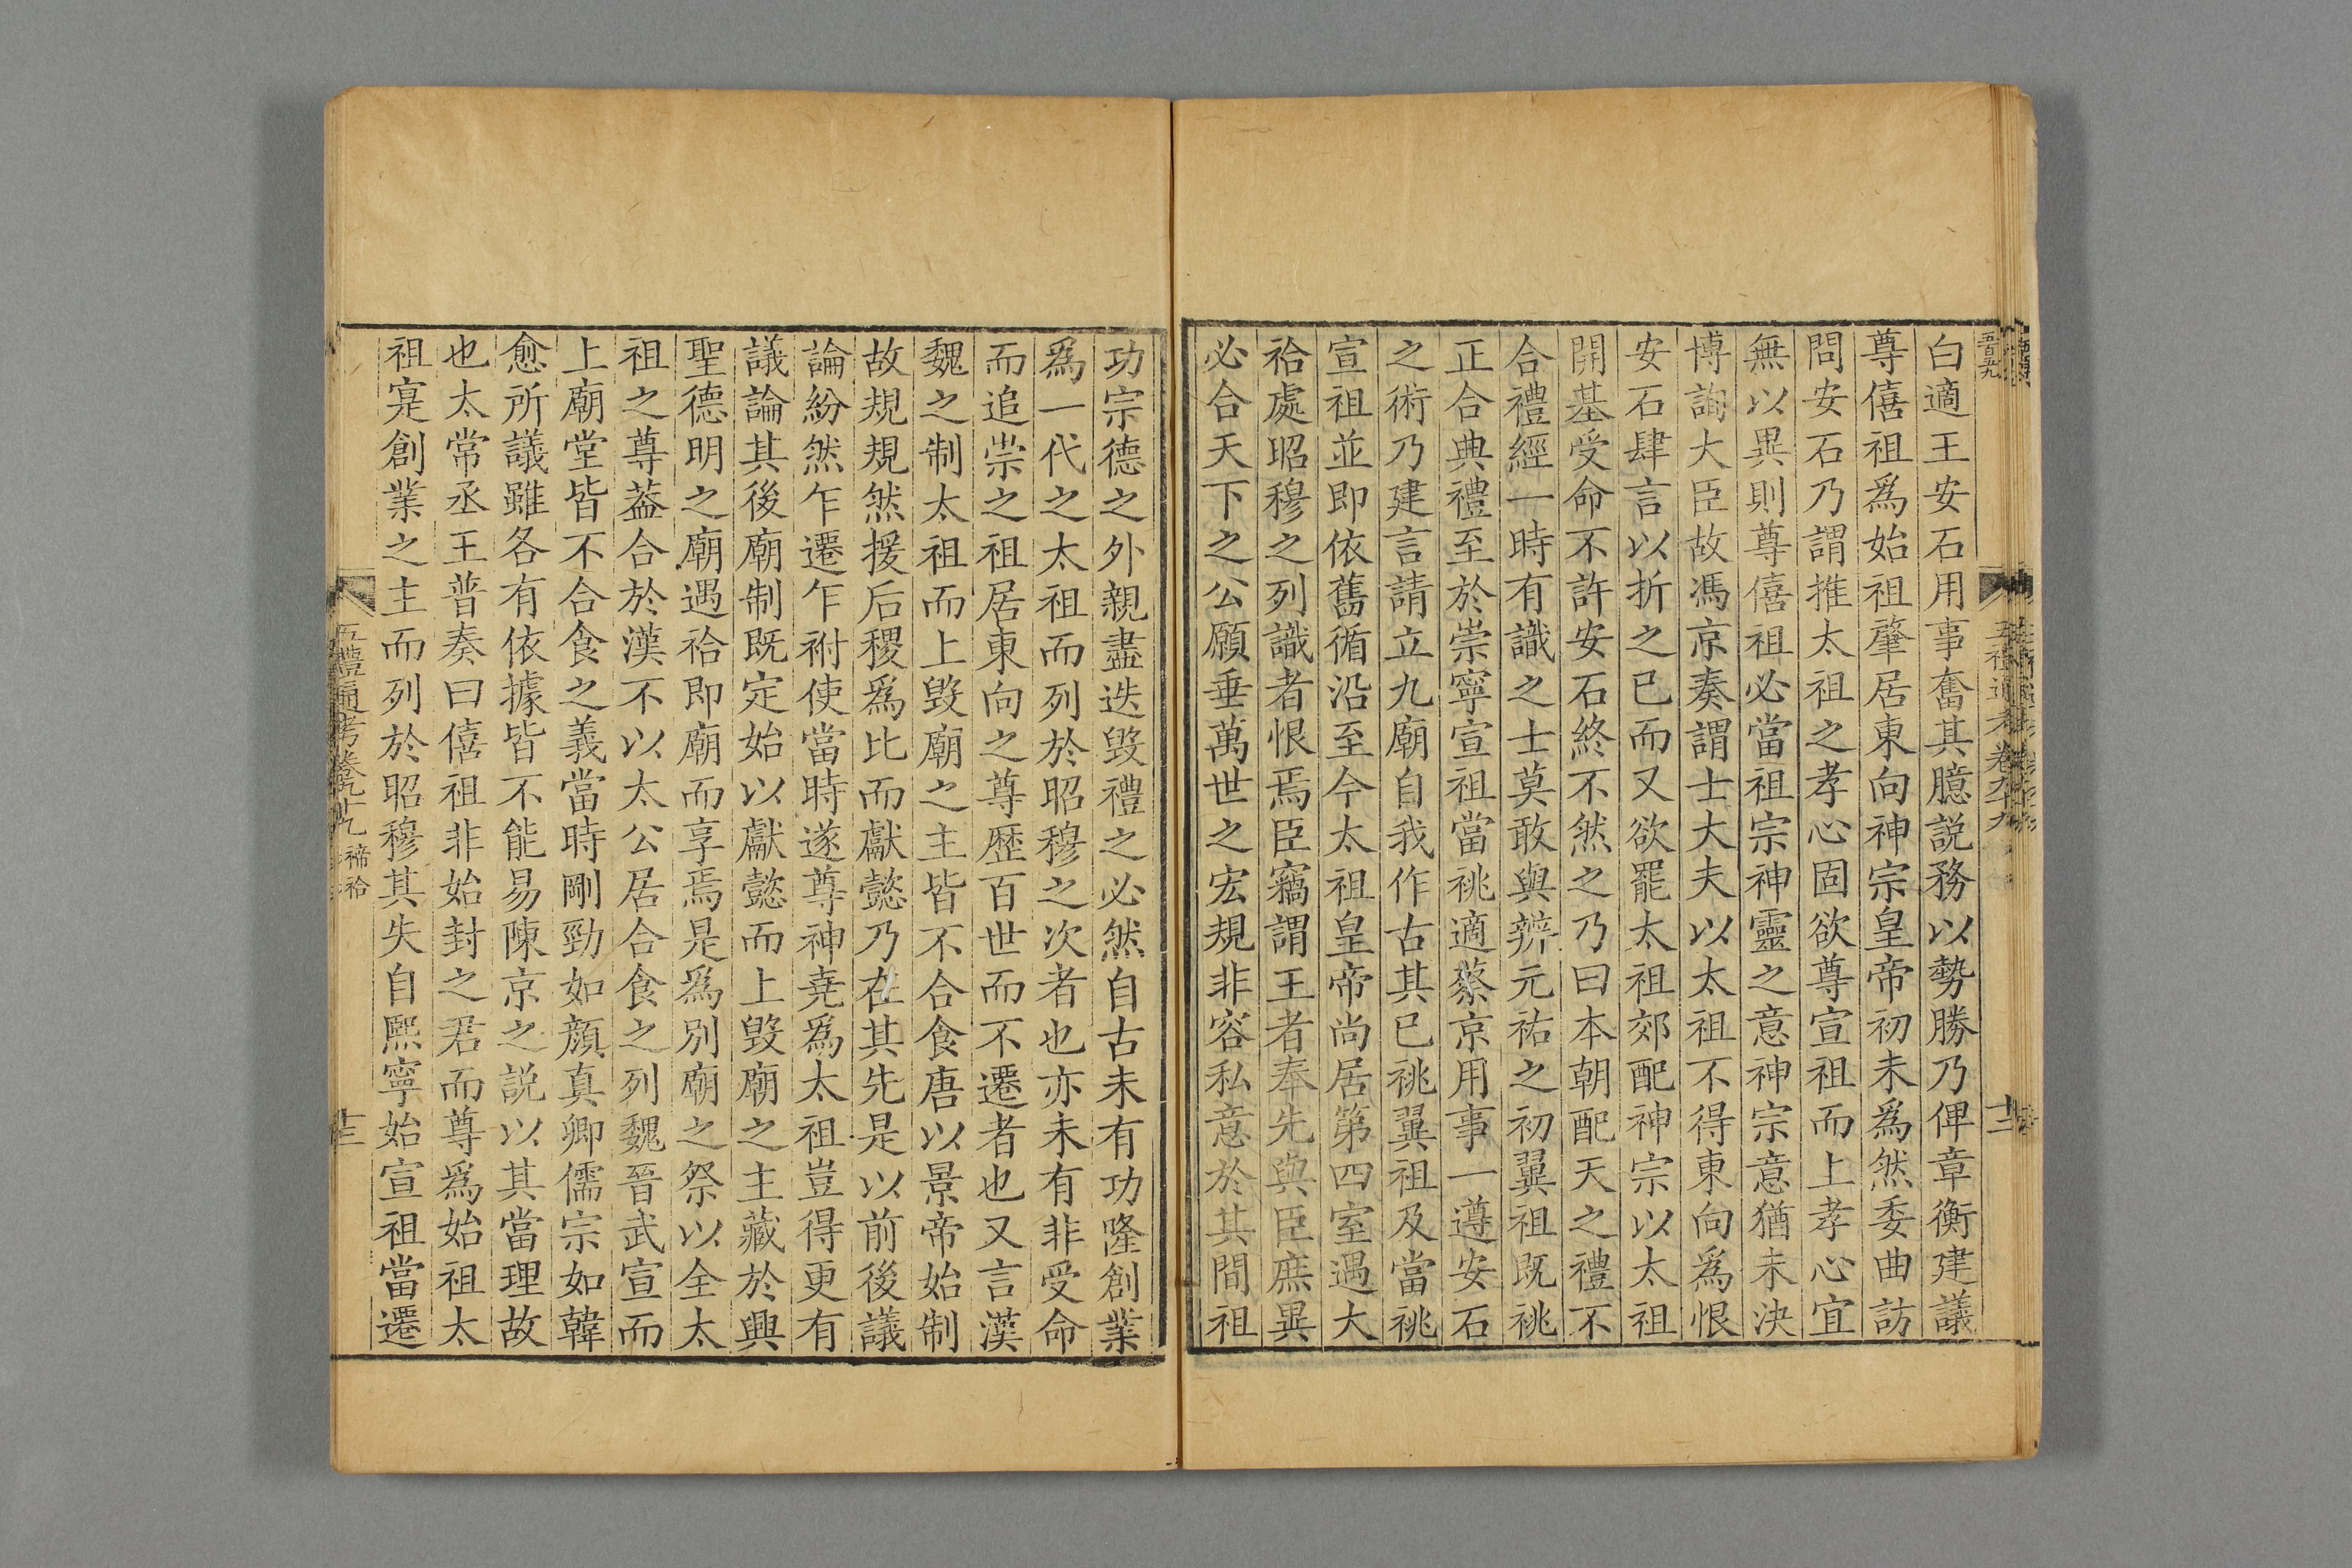 五百九
五禮通考卷九十九
十二
白適王安石用事奮其臆説務以勢勝乃俾章衡建議
尊僖祖爲始祖肇居東向神宗皇帝初未爲然委曲訪
問安石乃謂推太祖之孝心固欲尊宣祖而上孝心宜
無以異則尊僖祖必當祖宗神靈之意神宗意猶未決
博詢大臣故馮京奏謂士大夫以太祖不得東向爲恨
安石肆言以折之已而又欲罷太祖郊配神宗以太祖
開基受命不許安石終不然之乃曰本朝配天之禮不
合禮經一時有識之士莫敢與辨元祐之初翼祖既祧
正合典禮至於崇寧宣祖當祧適蔡京用事一遵安石
之術乃建言請立九廟自我作古其已祧翼祖及當祧
宣祖並即依舊循沿至今太祖皇帝尚居第四室遇大
祫處昭穆之列識者恨焉臣竊謂王者奉先與臣庶異
必合天下之公願垂萬世之宏規非容私意於其間祖
功宗德之外親盡迭毀禮之必然自古未有功隆創業
爲一代之太祖而列於昭穆之次者也亦未有非受命
而追崇之祖居東向之尊歷百世而不遷者也又言漢
魏之制太祖而上毀廟之主皆不合食唐以景帝始制
故規規然援后稷爲比而獻懿乃在其先是以前後議
論紛然乍遷乍祔使當時遂尊神堯爲太祖豈得更有
議論其後廟制既定始以獻懿而上毀廟之主藏於興
聖德明之廟遇祫即廟而享焉是爲別廟之祭以全太
祖之尊葢合於漢不以太公居合食之列魏晉武宣而
上廟堂皆不合食之義當時剛勁如顏真卿儒宗如韓
愈所議雖各有依據皆不能易陳京之説以其當理故
也太常丞王普奏曰僖祖非始封之君而尊爲始祖太
祖寔創業之主而列於昭穆其失自熙寧始宣祖當遷
五禮通考卷九十九 禘祫
十三